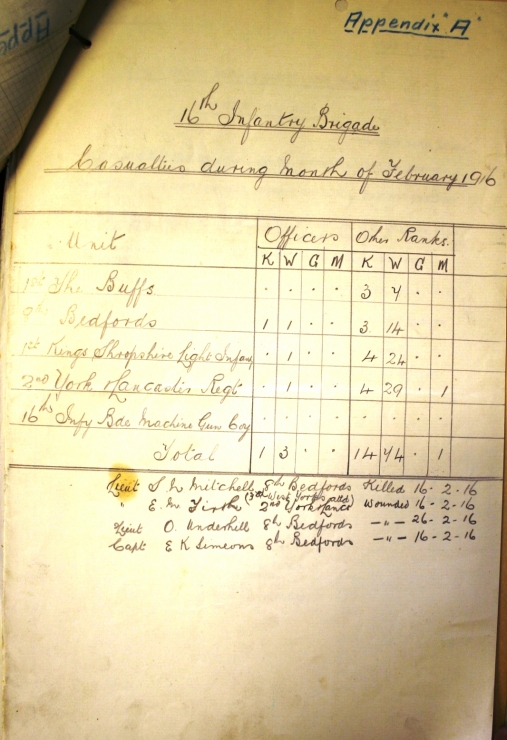 Appendix "A"
16th Infantry Brigade
Casualties during Month of February 1916
Unit Officers Other Ranks.
K W G M K W G M
1st The Buffs . . . . 3 7 . .
8th Bedfords 1 1 . . 3 14 . .
1st Kings Shropshire Light Infany . 1 . . 4 24 . .
2nd York & Lancaster Regt . 1 . . 4 29 . 1
16th Infy Bde Machine Gun Coy . . . . . . . .
Total 1 3 . . 14 74 . 1
Lieut Mitchell 8th Bedfords Killed 16-2-16
(3rd West Yorks attd)
" E. M. Firth 2nd York & Lancs Wounded 16-2-16
Lieut O. Underhell 8th Bedfords -"- 26-2-16
Capt E K Simeons 8th Bedfords -"- 16-2-16